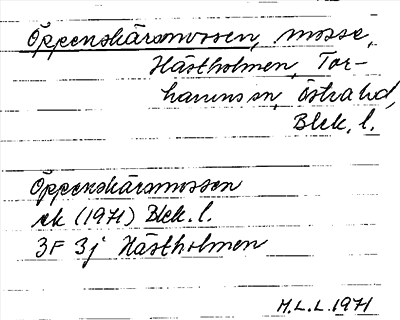 Öppenskärsmossen, mosse,
Hästholmen, Tor-
hamns sn, Östra hd,
Blek. l.
Öppenskärsmossen
ek (1971) Blek. l.
3F 3j Hästholmen
M.L.L. 1971